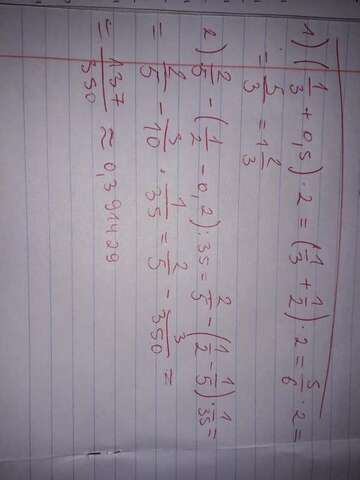 1) (1/3 + 0,5) · 2 = (1/3 + 1/2) · 2 = 5/6 · 2 =
= 5/3 = 1 2/3
2) 2/5 - (1/2 - 0,2) : 35 = 2/5 - (1/2 - 1/5) · 1/35 =
= 2/5 - 3/10 · 1/35 = 2/5 - 3/350 =
= 137/350 ≈ 0,391429